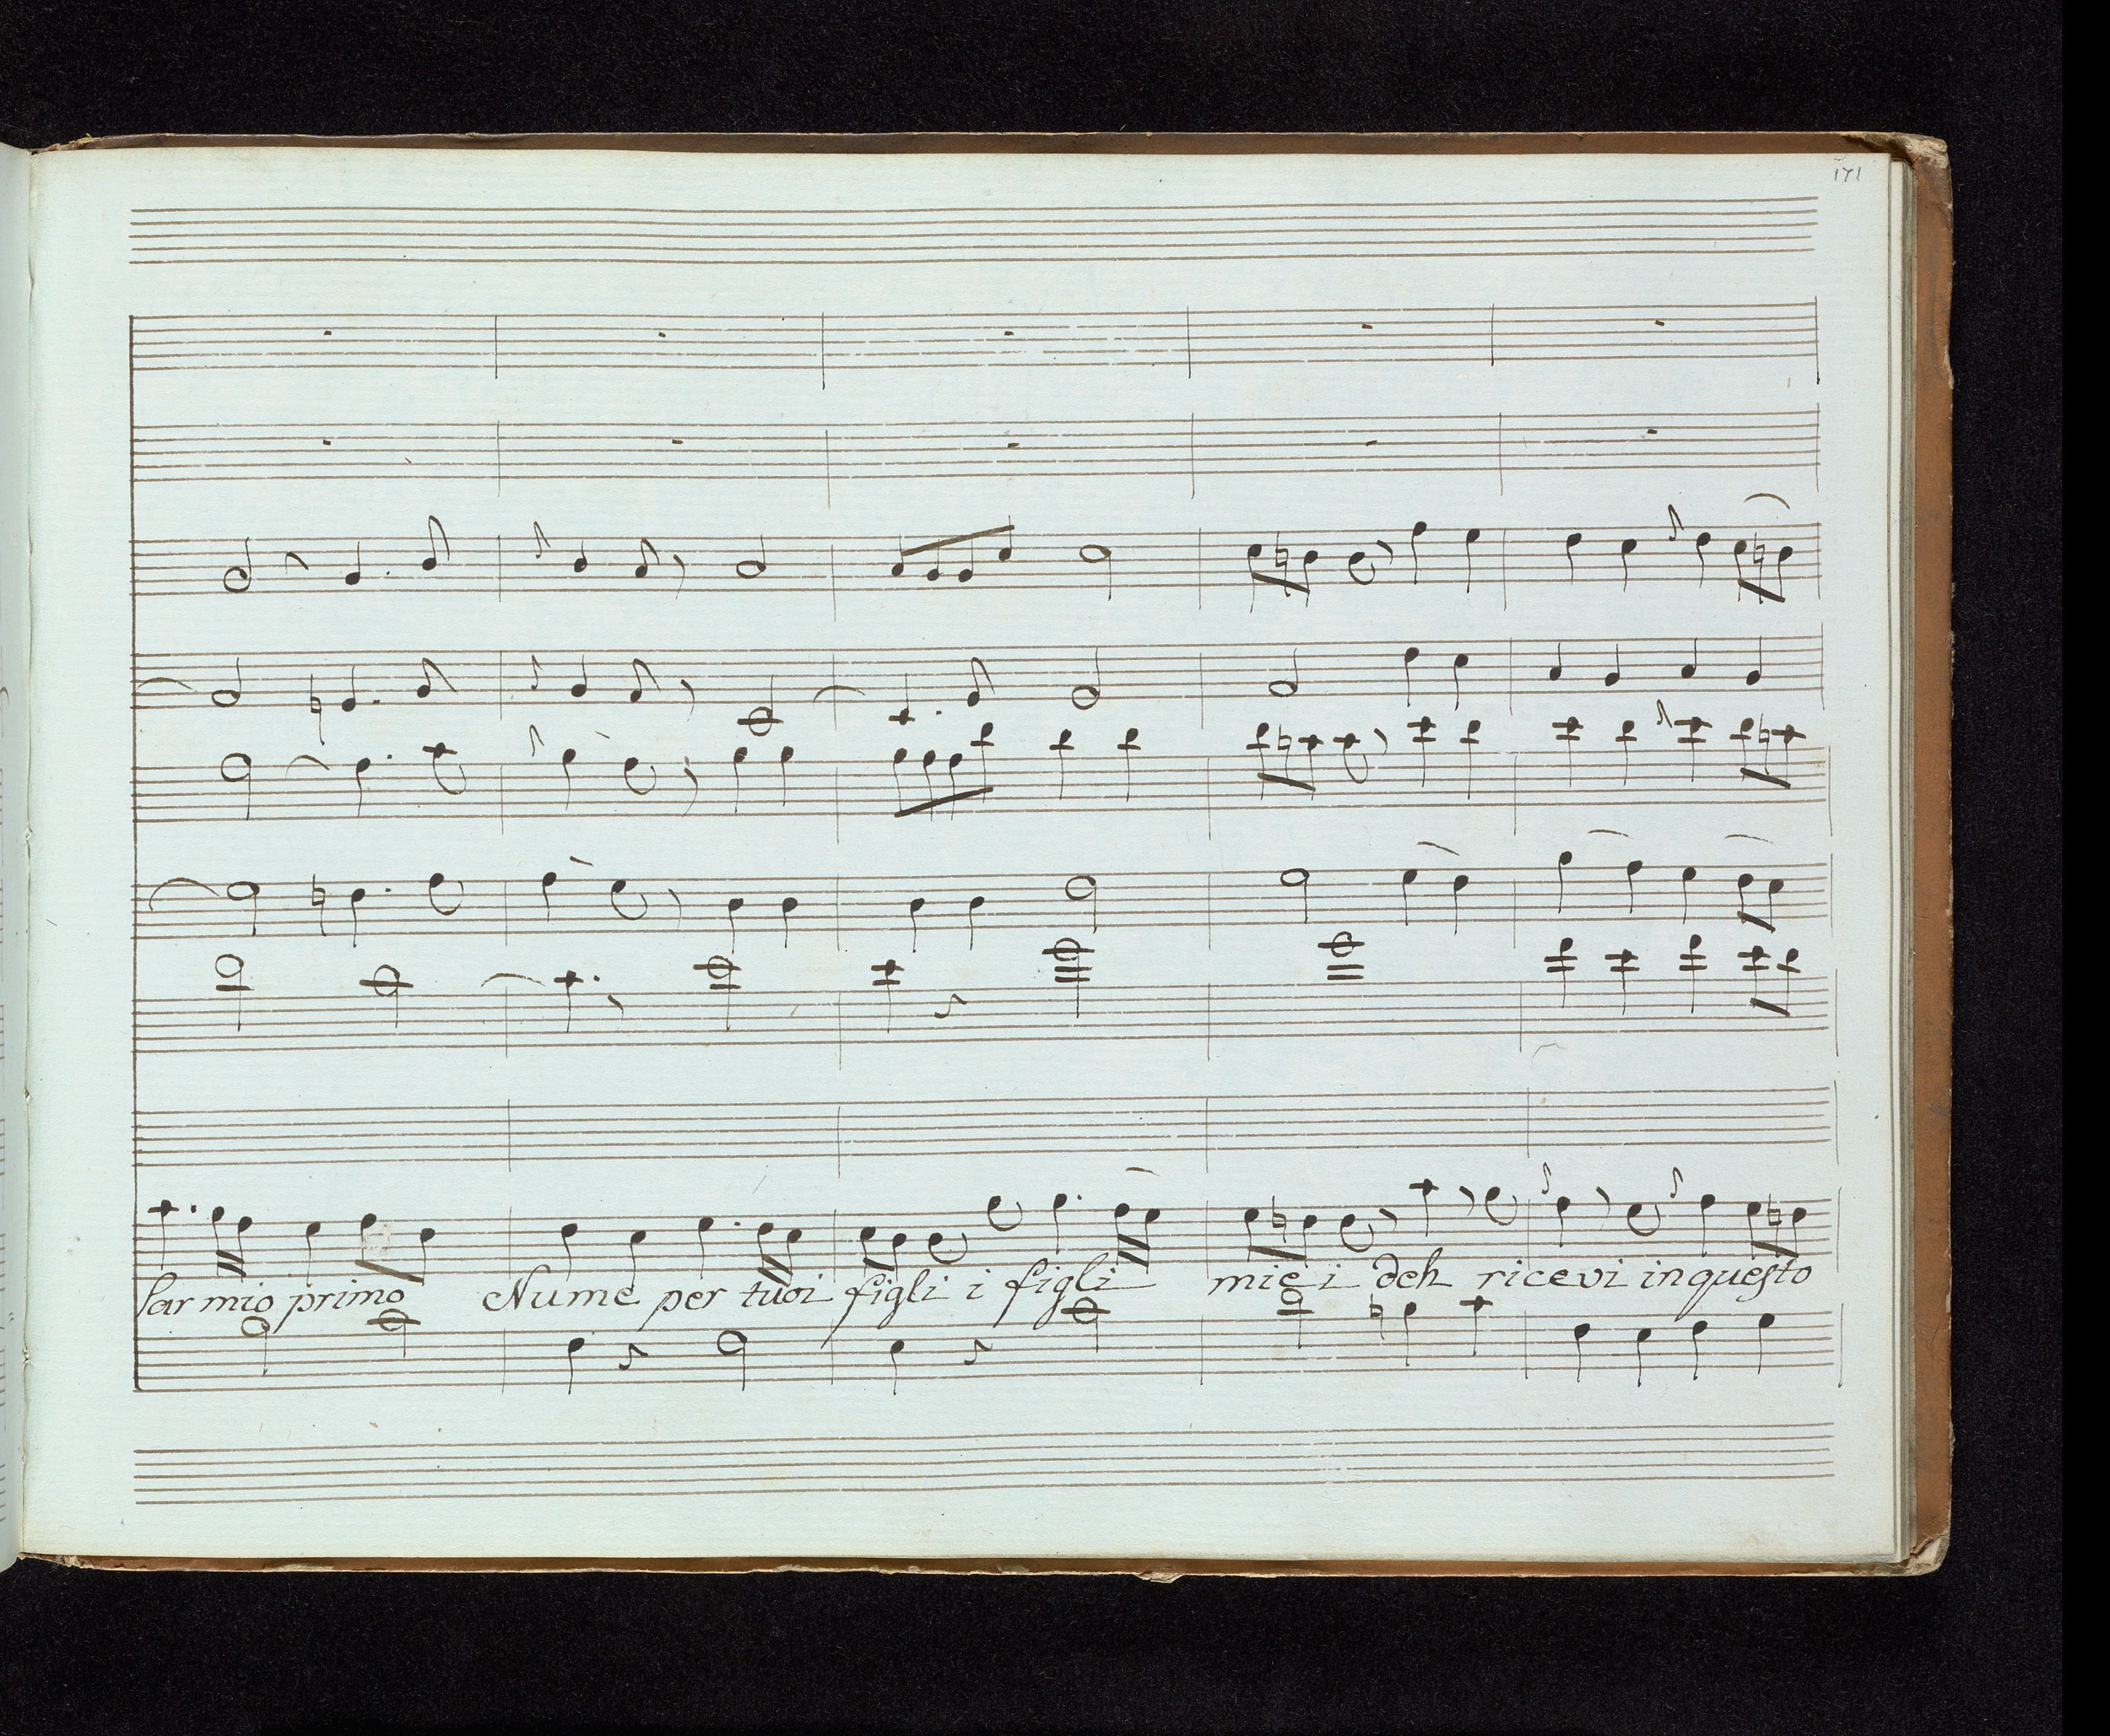 171
far mio primo Nume per tuoi figli i figli mie i deh ricevi in questo